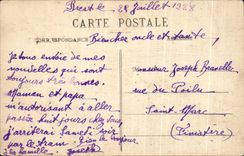 Brest le 28 Juillet 1928
CARTE POSTALE
CORRESPONDANCE
Bien cher oncle et tante,
je vous envoie de mes
nouvelles qui sont
toujours très bonnes.
Maman et papa
m'autorisant à aller
passer huit jours chez vous
j'arriterai Samedi soir
par le tram. Bien le bonjour
à la famille. Joseph
Monsieur Joseph
rue du Poilu
Saint-Marc
Finistère